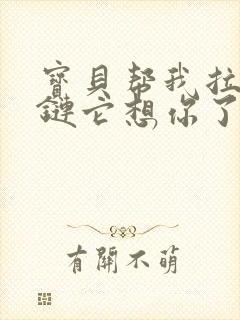 寶貝帮我拉
鏈它想你了
有關不萌